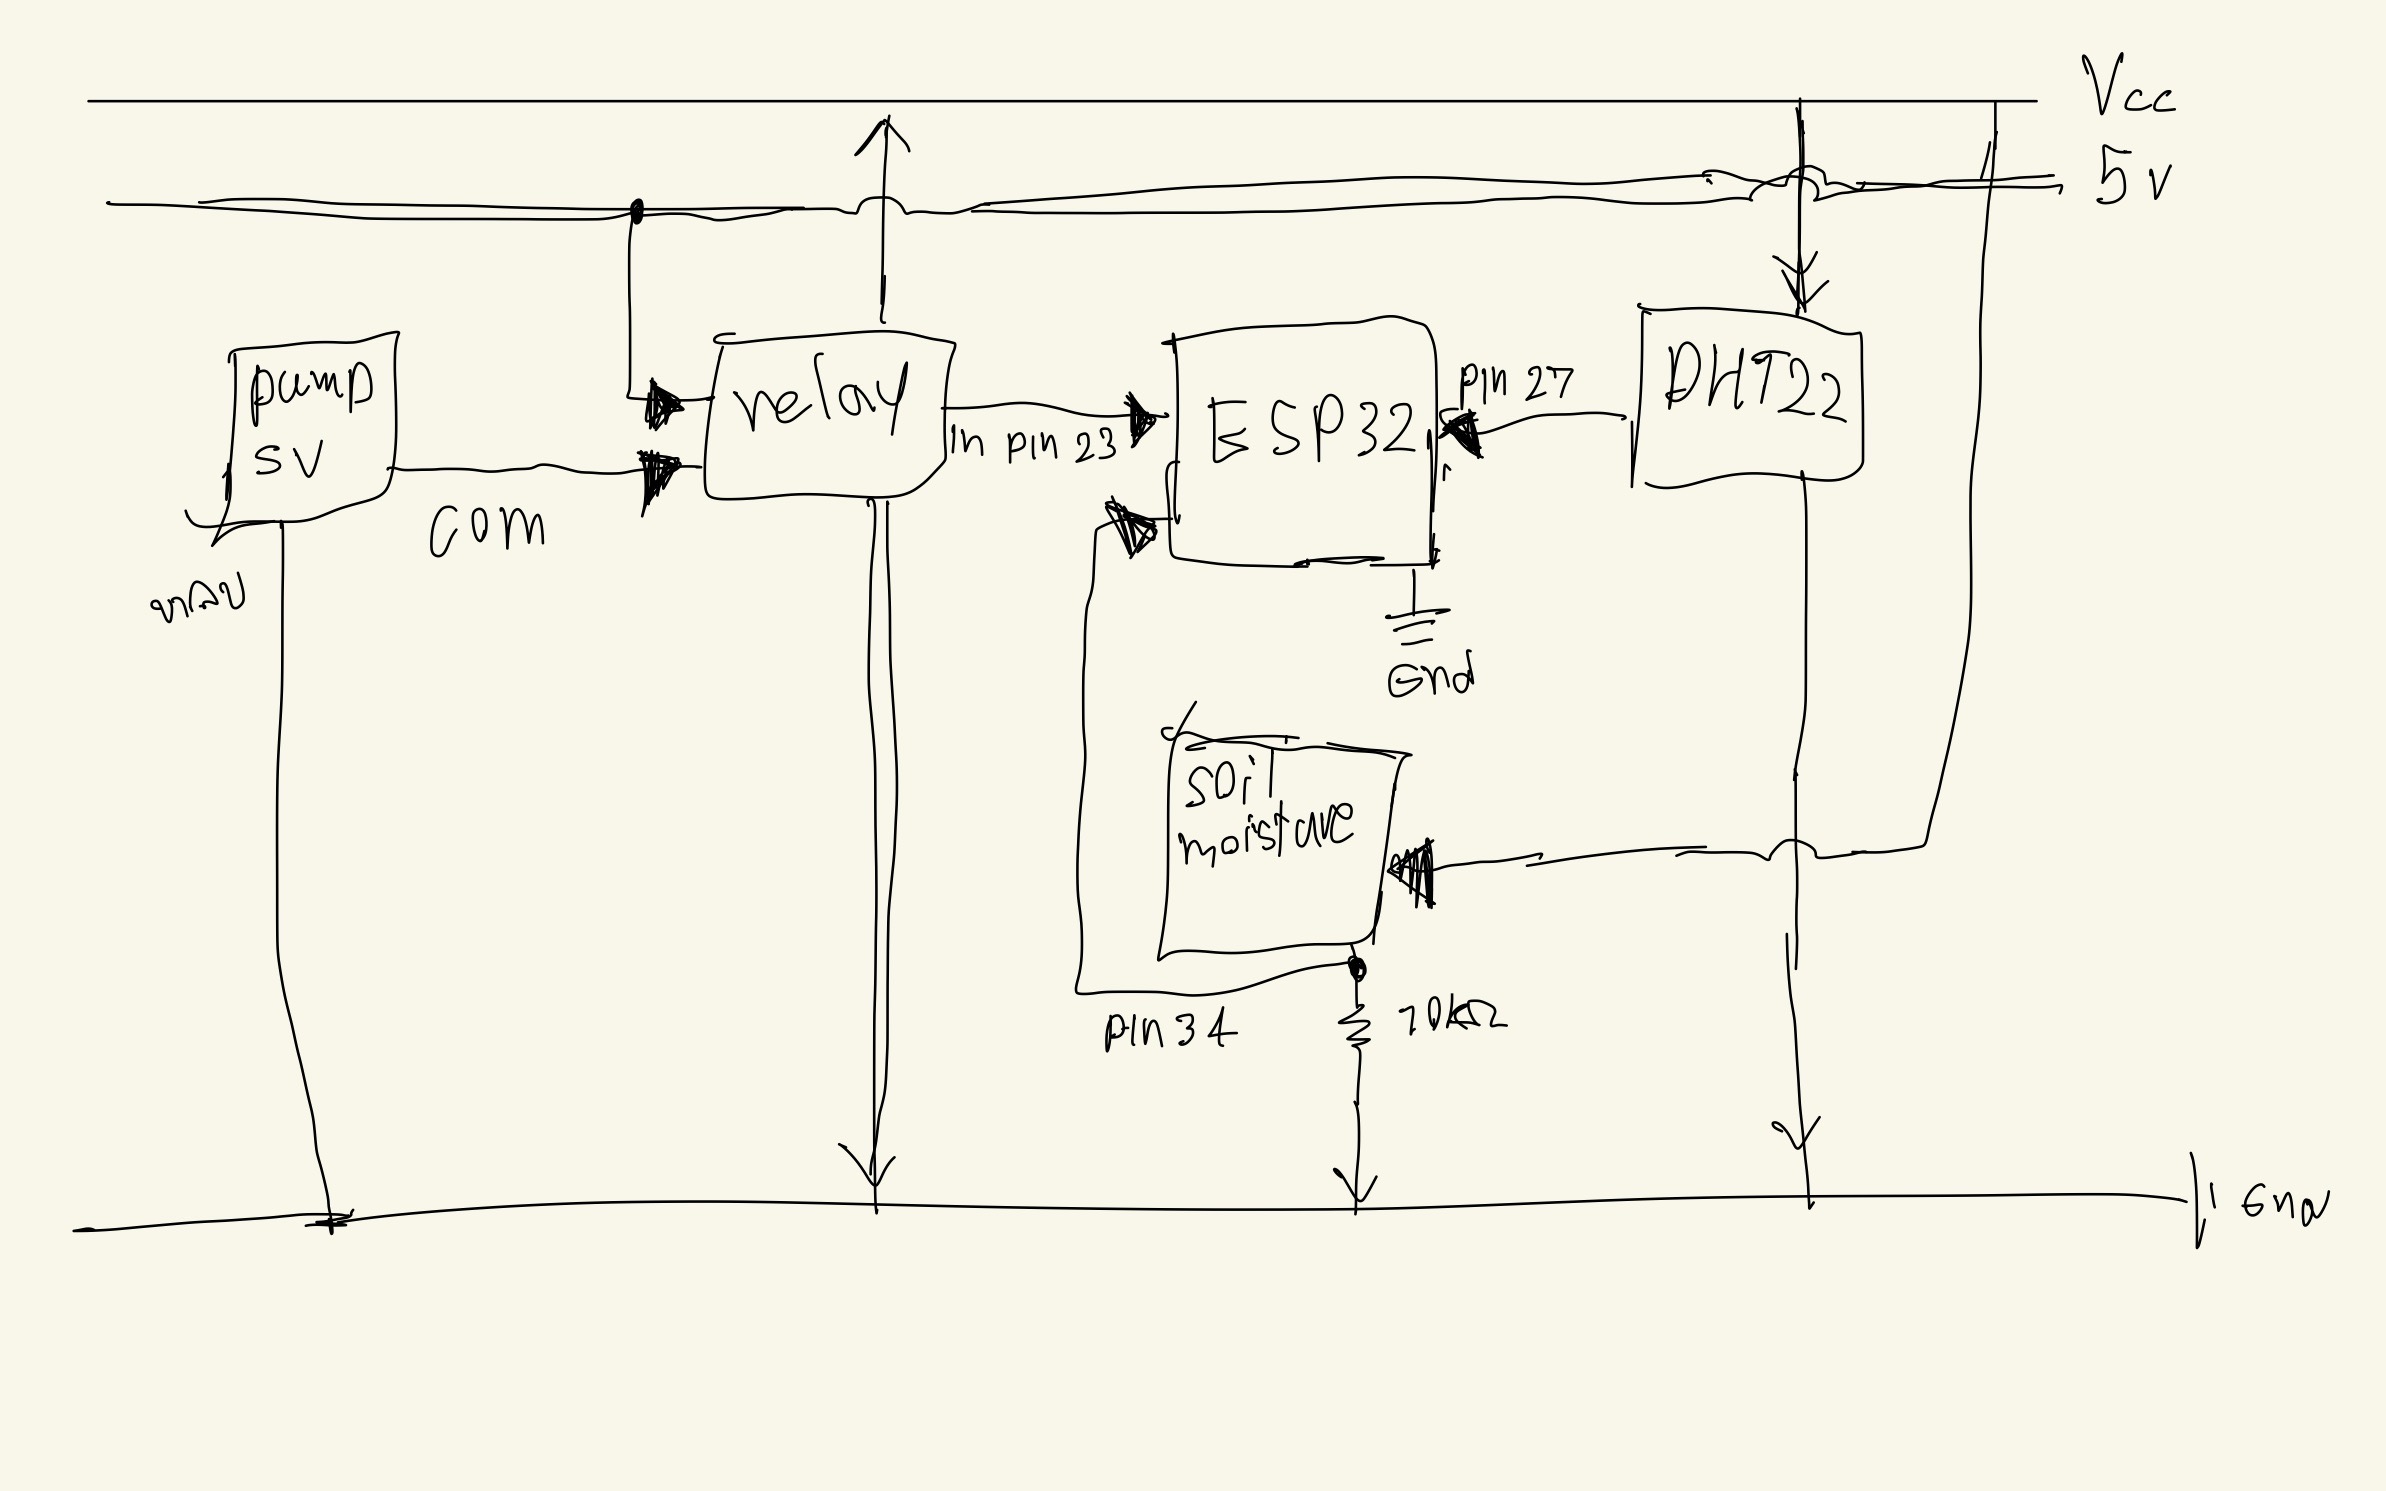 Vcc
5v
pump
5V
relay
in pin 23
ESP32
pin 27
DHT22
com
Gnd
soil
moisture
pin 34
10kΩ
Gnd